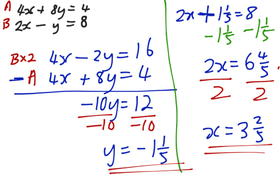 A 4x + 8y = 4
B 2x - y = 8
B×2 4x - 2y = 16
-A 4x + 8y = 4
-10y = 12
-10 -10
y = -1 1/5
2x + 1 1/5 = 8
-1 1/5 -1 1/5
2x = 6 4/5
2 2
x = 3 2/5